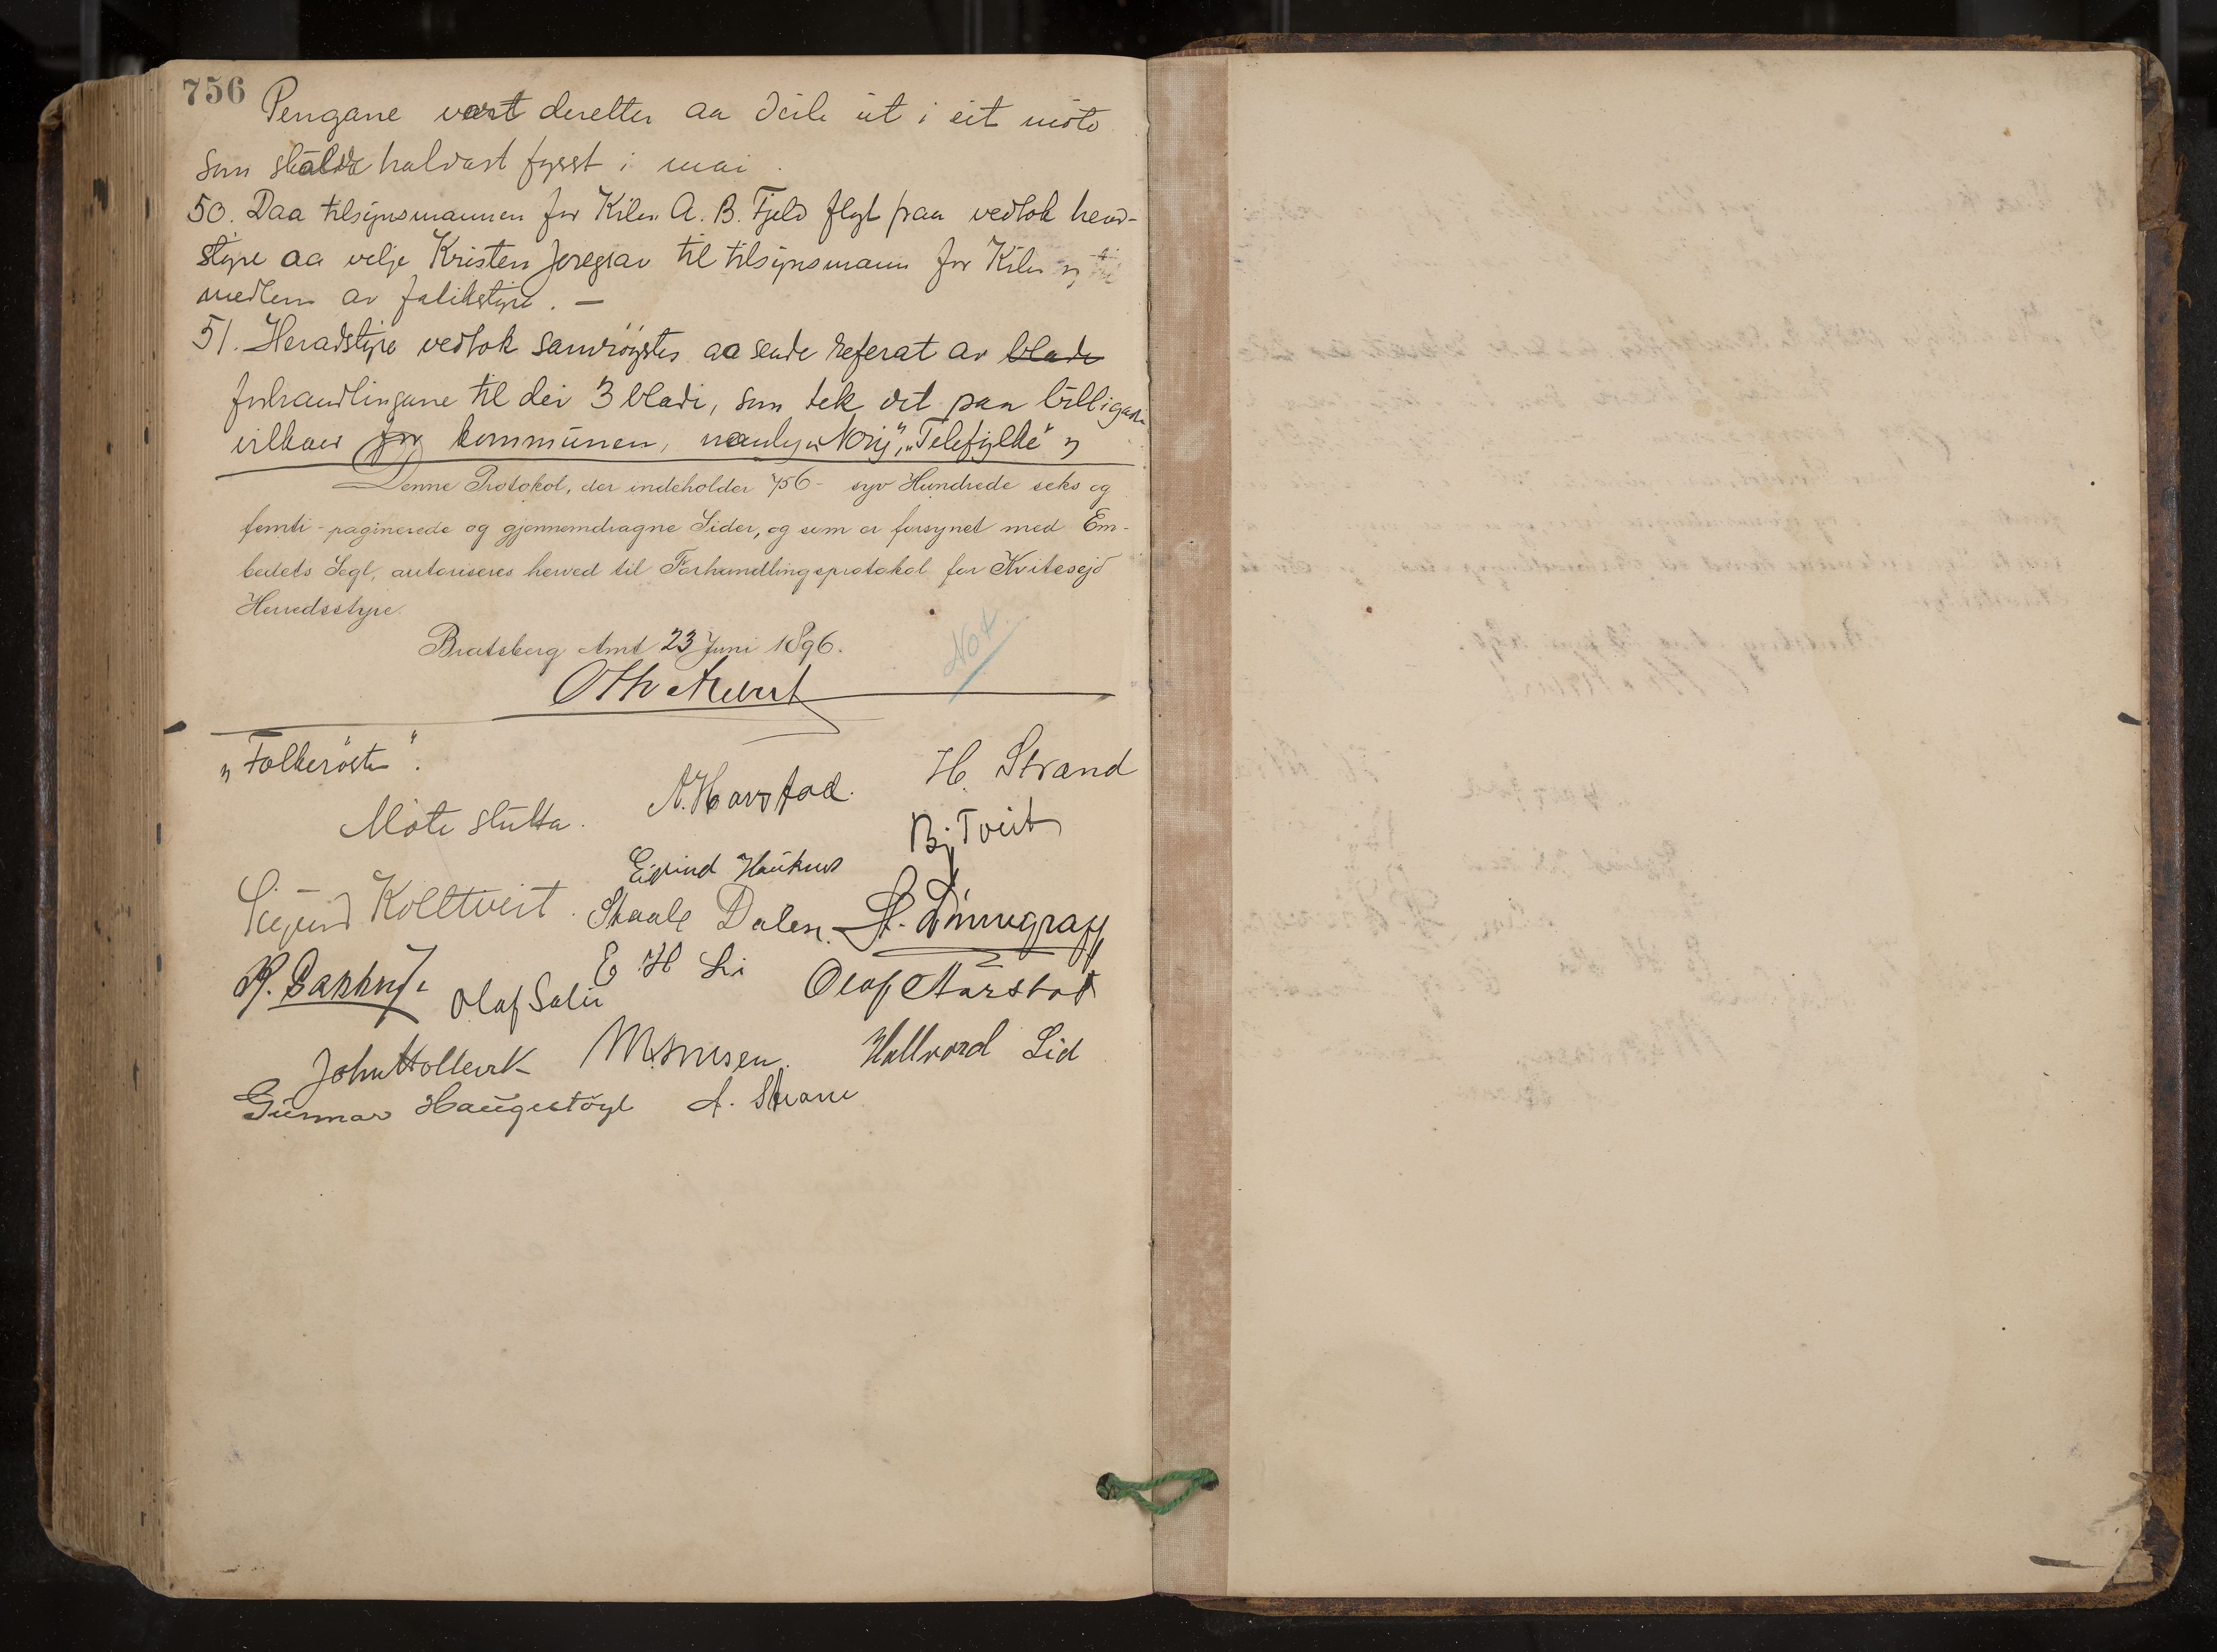 756
Pengane vert deretter aa deile ut i eit møte
som skulde haldast fysst i mai
50. Daa tilsynsmannen for Kilen A. B. Fjeld flyt paa vedtok herad-
styre aa velje Kristen til tilsynsmann for Kilen og til
medlem av
51. Heradstyre vedtok samrøystes aa sende referat av blade
forhandlingane til dei 3 bladi, som tek det paa billigaste
vilkaar for kommunen, nemlyg „Norig", „Telefylke" og
Denne Protokol, der indeholder 756 - syv Hundrede seks og
femti - paginerede og gjennemdragne Sider, og som er forsynet med Em-
bedets Segl, autoriseres herved til Forhandlingsprotokol for Kvitesejd
Herredsstyre.
Bratsberg Amt 23 Juni 1896.
„Folkerøsti".
Møte slutta.
A. Havstad.
H. Strand
Bj Tveit
Eivind Haukus
Sigurd Kolltveit.
Skaale Dalen.
St. Dønnegraff
E H Li
Olaf Aarstad
Olaf Salie
John Hollevik
Hallvard Lid
Gunnar Haugestøyl
A. Strane